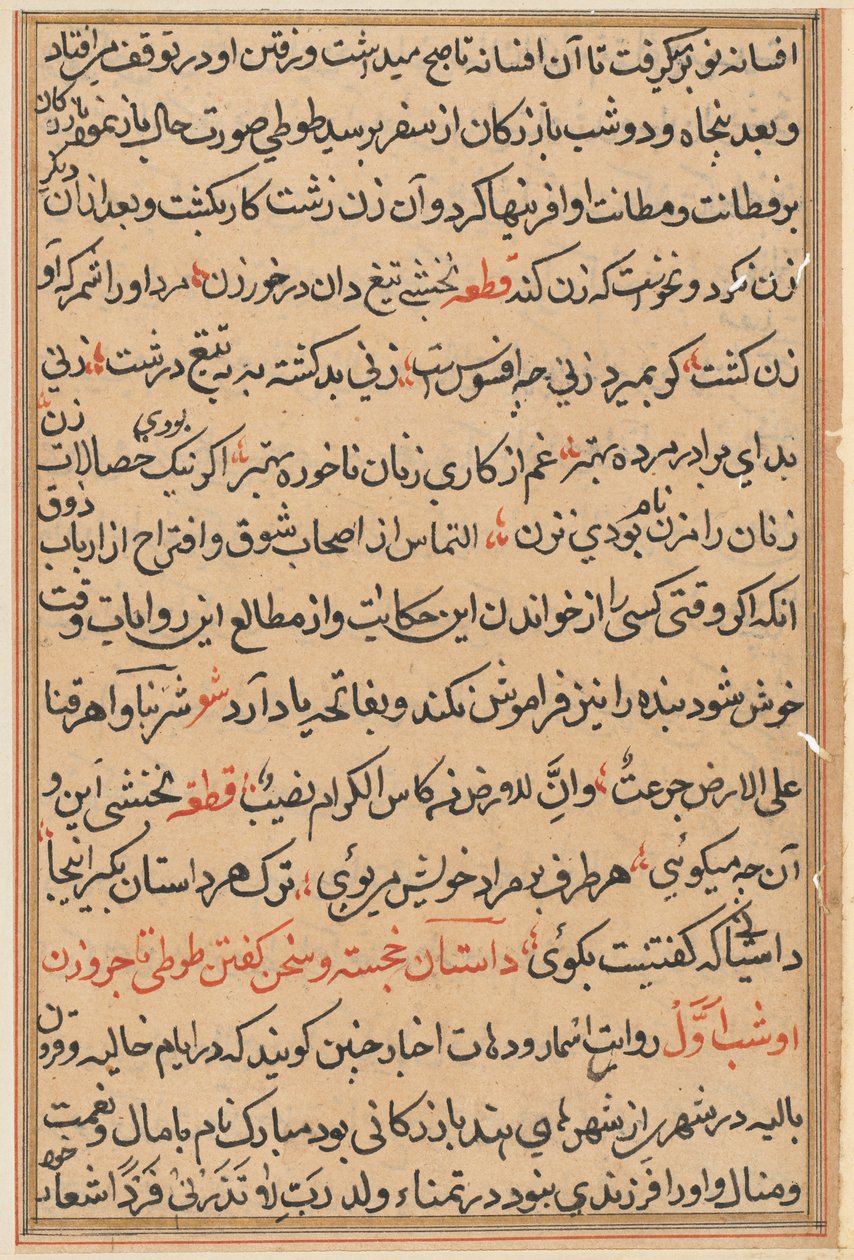 افسانه نو برمیگرفت تا آن افسانه تا صبح میداشت و زفتن او در توقف می افتاد
و بعد پنجاه و دو شب بازرکان از سفر برسید طوطي صورت حال باز نمود بازرکان
بر فطانت و مطانت او افرینها کرد و آن زن زشت کار بکشت و بعد از ان دیکر
زن نکرد و نخواست که زن کند قطعه نخشبی تیغ دان در خور زن مرد او را شمر که او
زن کشت کر بمیرد زني چه افسوس است زني بد کشته به به تیغ درشت زني
بد ای برادر مرده بهتر غم از کاری زنان نا خورده بهتر اکر نیک بودي خصالات زن
زنان را مزن نام بودي نزن التماس از اصحاب شوق و اقتراح از ارباب ذوق
انکه اکر وقتی کسی را از خواندن این حکایات و از مطالع این روایات وقت
خوش شود بنده را نیز فراموش نکند و بفاتحه یاد آرد شو شربنا و اهرقنا
علی الارض جرعتٌ وانَّ للارض من کاس الکرام نصیبٌ قطعه نخشبی این و
آن چه میکوئي هر طرف بر مراد خویش می پوئي ترک هر داستان بکیر اینجا
داستانی که کفتنیست بکوئی داستان خجسته و سخن کفتن طوطی تاجر و زن
او شب اَوَّلْ روایت اسمار و دهات اخبار چنین کویند که در ایام خالیه و قرون
بالیه در شهری از شهرهای هند بازرکانی بود مبارک نام با مال و نعمت
و منال و او را فرزندي نبود در تمناء ولد رَبِّ لا تَذَرْنیْ فَرْدًا شعار خود